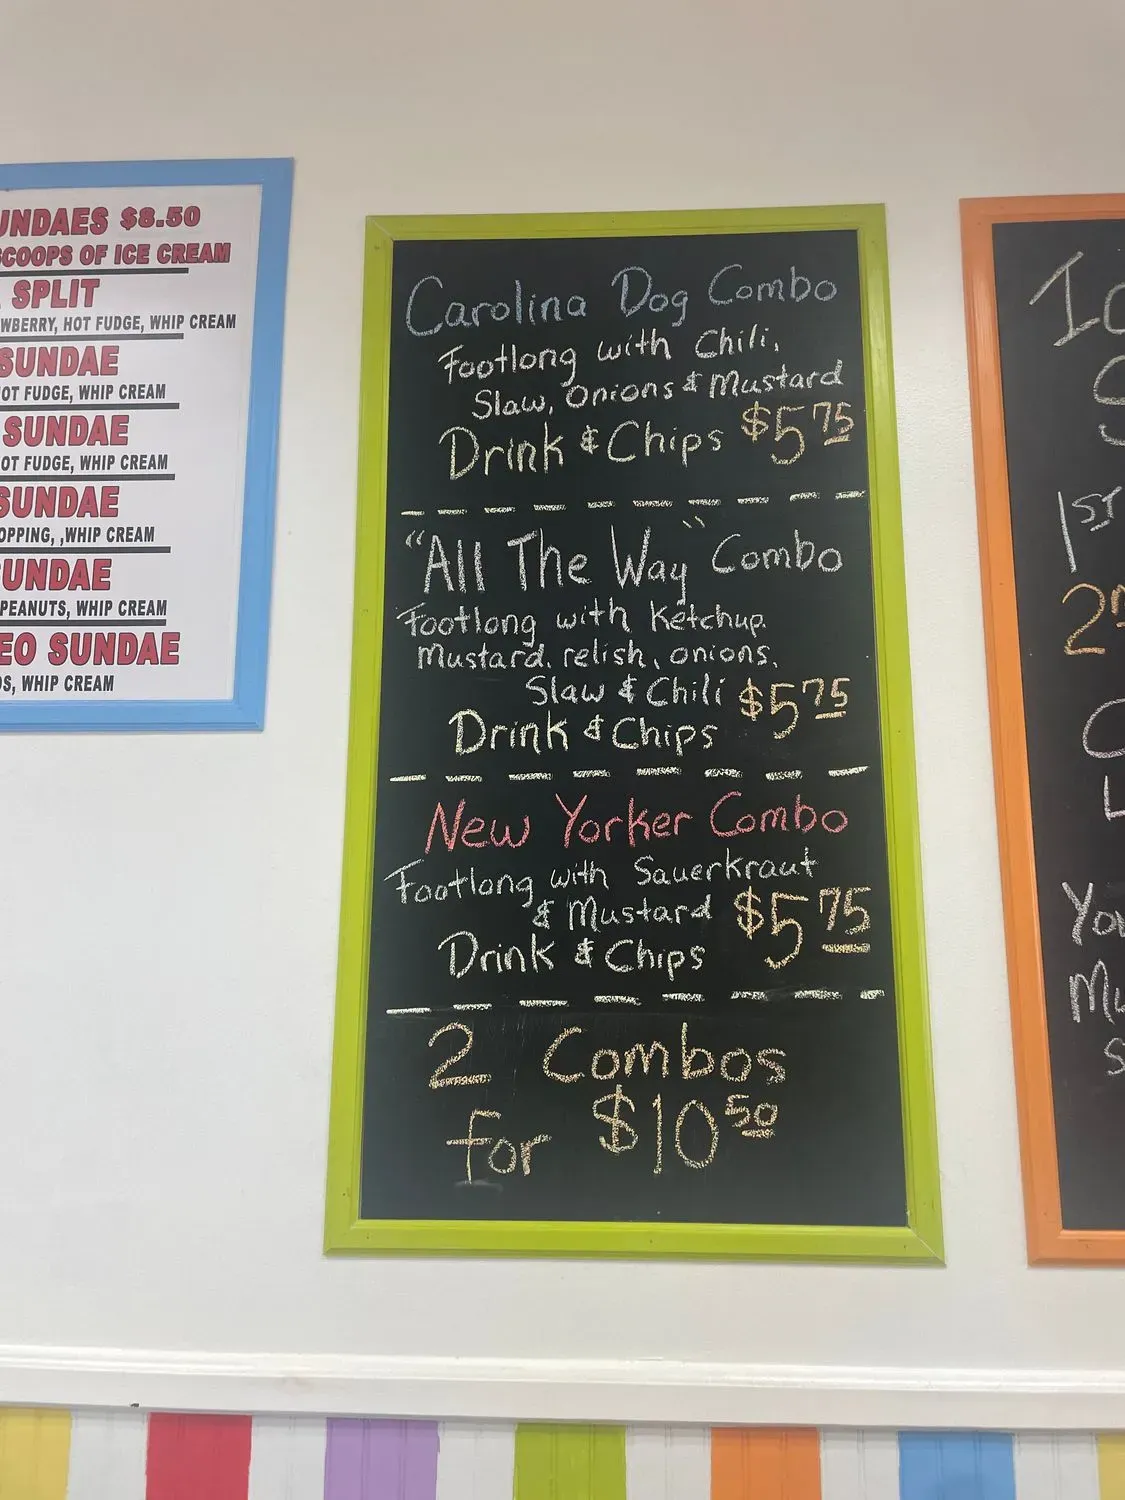 UNDAES $8.50
SCOOPS OF ICE CREAM
SPLIT
WBERRY, HOT FUDGE, WHIP CREAM
SUNDAE
HOT FUDGE, WHIP CREAM
SUNDAE
HOT FUDGE, WHIP CREAM
SUNDAE
OPPING, ,WHIP CREAM
SUNDAE
PEANUTS, WHIP CREAM
EO SUNDAE
OS, WHIP CREAM
Carolina Dog Combo
Footlong with Chili,
Slaw, Onions & Mustard
Drink & Chips $5.75
"All The Way" Combo
Footlong with Ketchup,
Mustard, relish, onions,
Slaw & Chili $5.75
Drink & Chips
New Yorker Combo
Footlong with Sauerkraut
& Mustard $5.75
Drink & Chips
2 Combos
for $10.50
Ic
S
1ST
2n
C
L
You
Mu
S